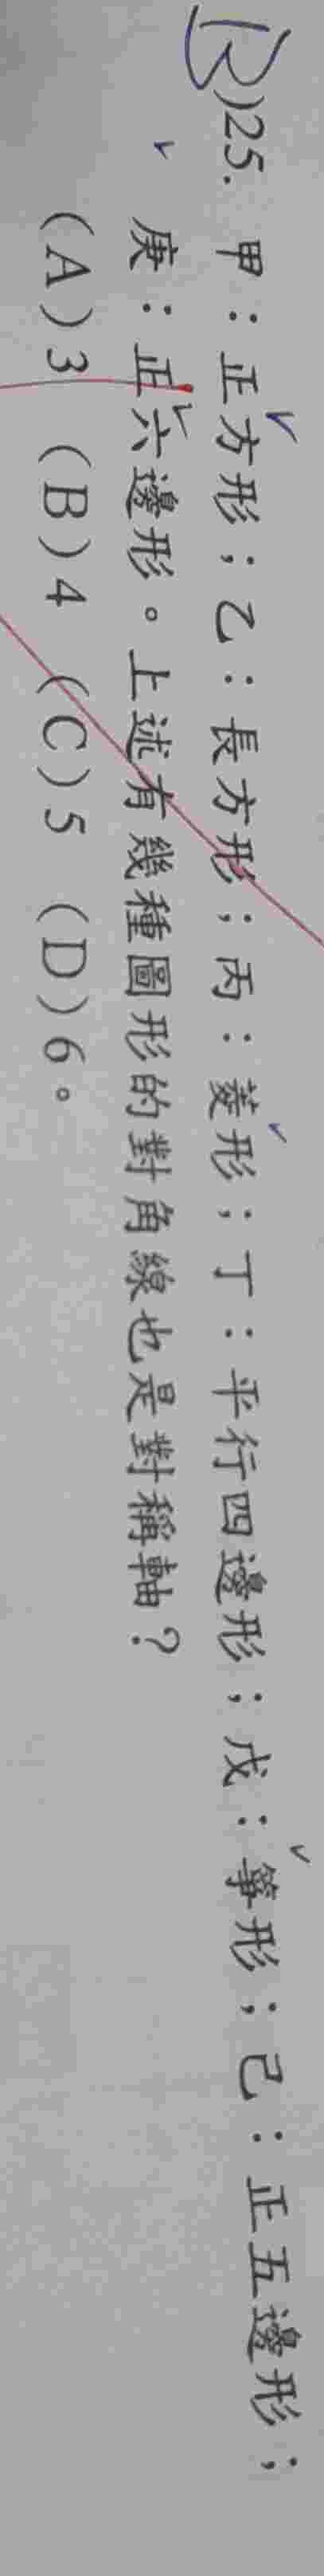 (B)25. 甲：正方形；乙：長方形；丙：菱形；丁：平行四邊形；戊：箏形；己：正五邊形；
庚：正六邊形。上述有幾種圖形的對角線也是對稱軸？
(A)3 (B)4 (C)5 (D)6。